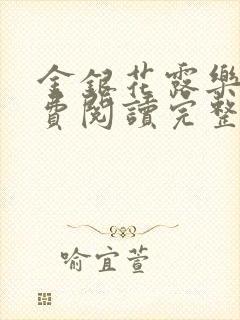 金銀花露樂
費閱讀完整
喻宜萱